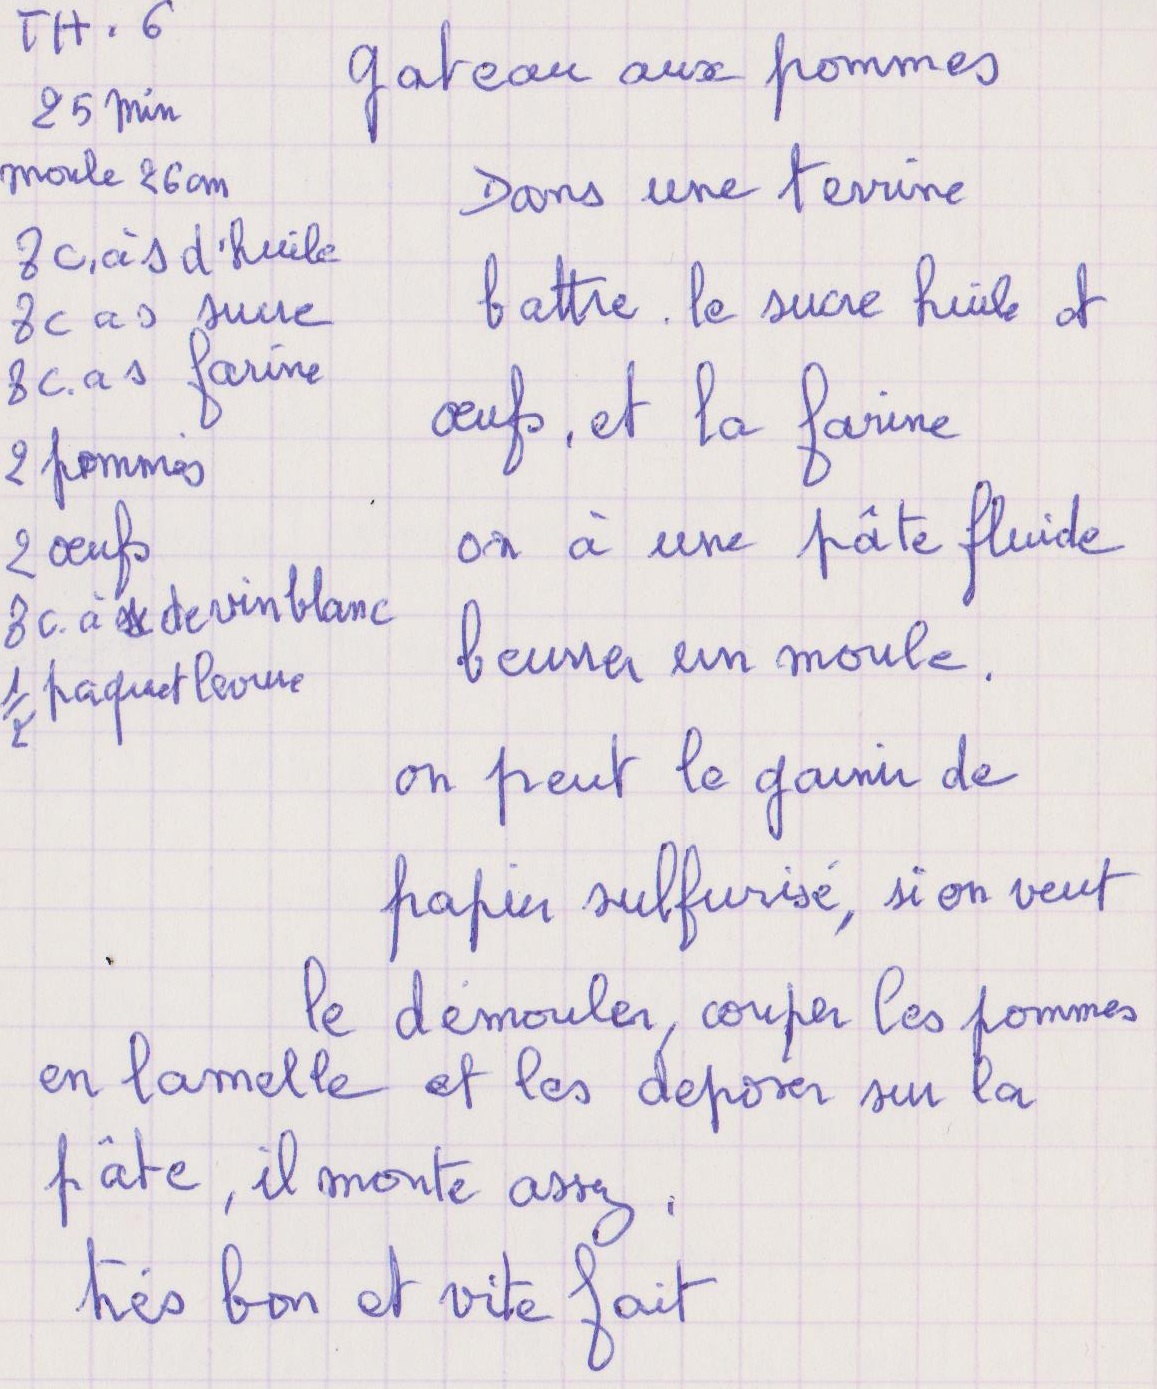 TH. 6
25 min
moule 26 cm
8 c. à s d'huile
8 c a s sucre
8 c. a s farine
2 pommes
2 œufs
8 c. à s de vin blanc
1/2 paquet levure
gateau aux pommes
Dans une terrine
battre. le sucre huile et
œufs, et la farine
on à une pâte fluide
beurrer un moule.
on peut le garnir de
papier sulfurisé, si on veut
le démouler, couper les pommes
en lamelle et les deposer sur la
pâte, il monte assez.
trés bon et vite fait